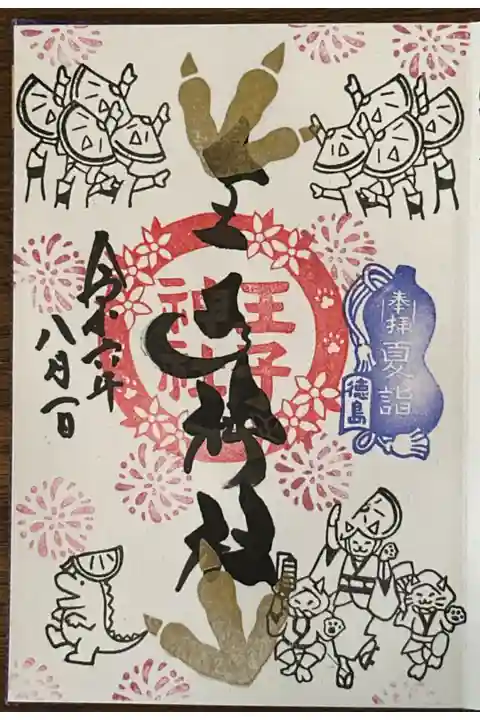 奉拝
夏詣
徳島
王子神社
王子
神社
令和六年
八月一日